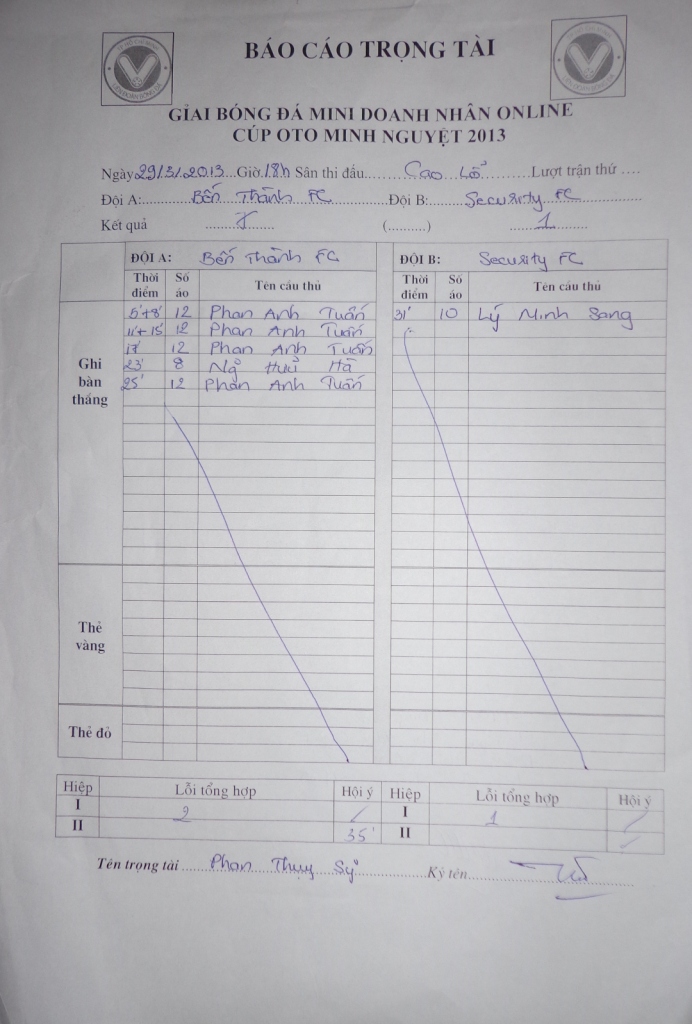 BÁO CÁO TRỌNG TÀI
GIẢI BÓNG ĐÁ MINI DOANH NHÂN ONLINE
CÚP OTO MINH NGUYỆT 2013
Ngày 29/3/2013...Giờ.18h Sân thi đấu......Cao Lỗ.........Lượt trận thứ ....
Đội A:..........Bến Thành FC...............Đội B:....Security FC.............
Kết quả ........7........ (..........) ........1........
ĐỘI A: Bến Thành FC ĐỘI B: Security FC
Thời điểm Số áo Tên cầu thủ Thời điểm Số áo Tên cầu thủ
Ghi bàn thắng
5'+8' 12 Phan Anh Tuấn 31' 10 Lý Minh Sang
11'+15' 12 Phan Anh Tuấn
17' 12 Phan Anh Tuấn
23' 8 Ngô Hữu Hà
25' 12 Phan Anh Tuấn
Thẻ vàng
Thẻ đỏ
Hiệp Lỗi tổng hợp Hội ý Hiệp Lỗi tổng hợp Hội ý
I 2 I 1
II 35' II
Tên trọng tài ......Phan Thụy Sỹ..................Ký tên